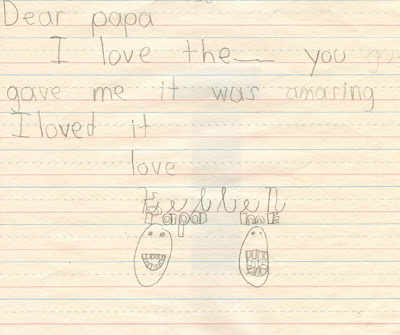 Dear papa
I love the__ you
gave me it was amasing
I loved it
love
Kellen
Papa